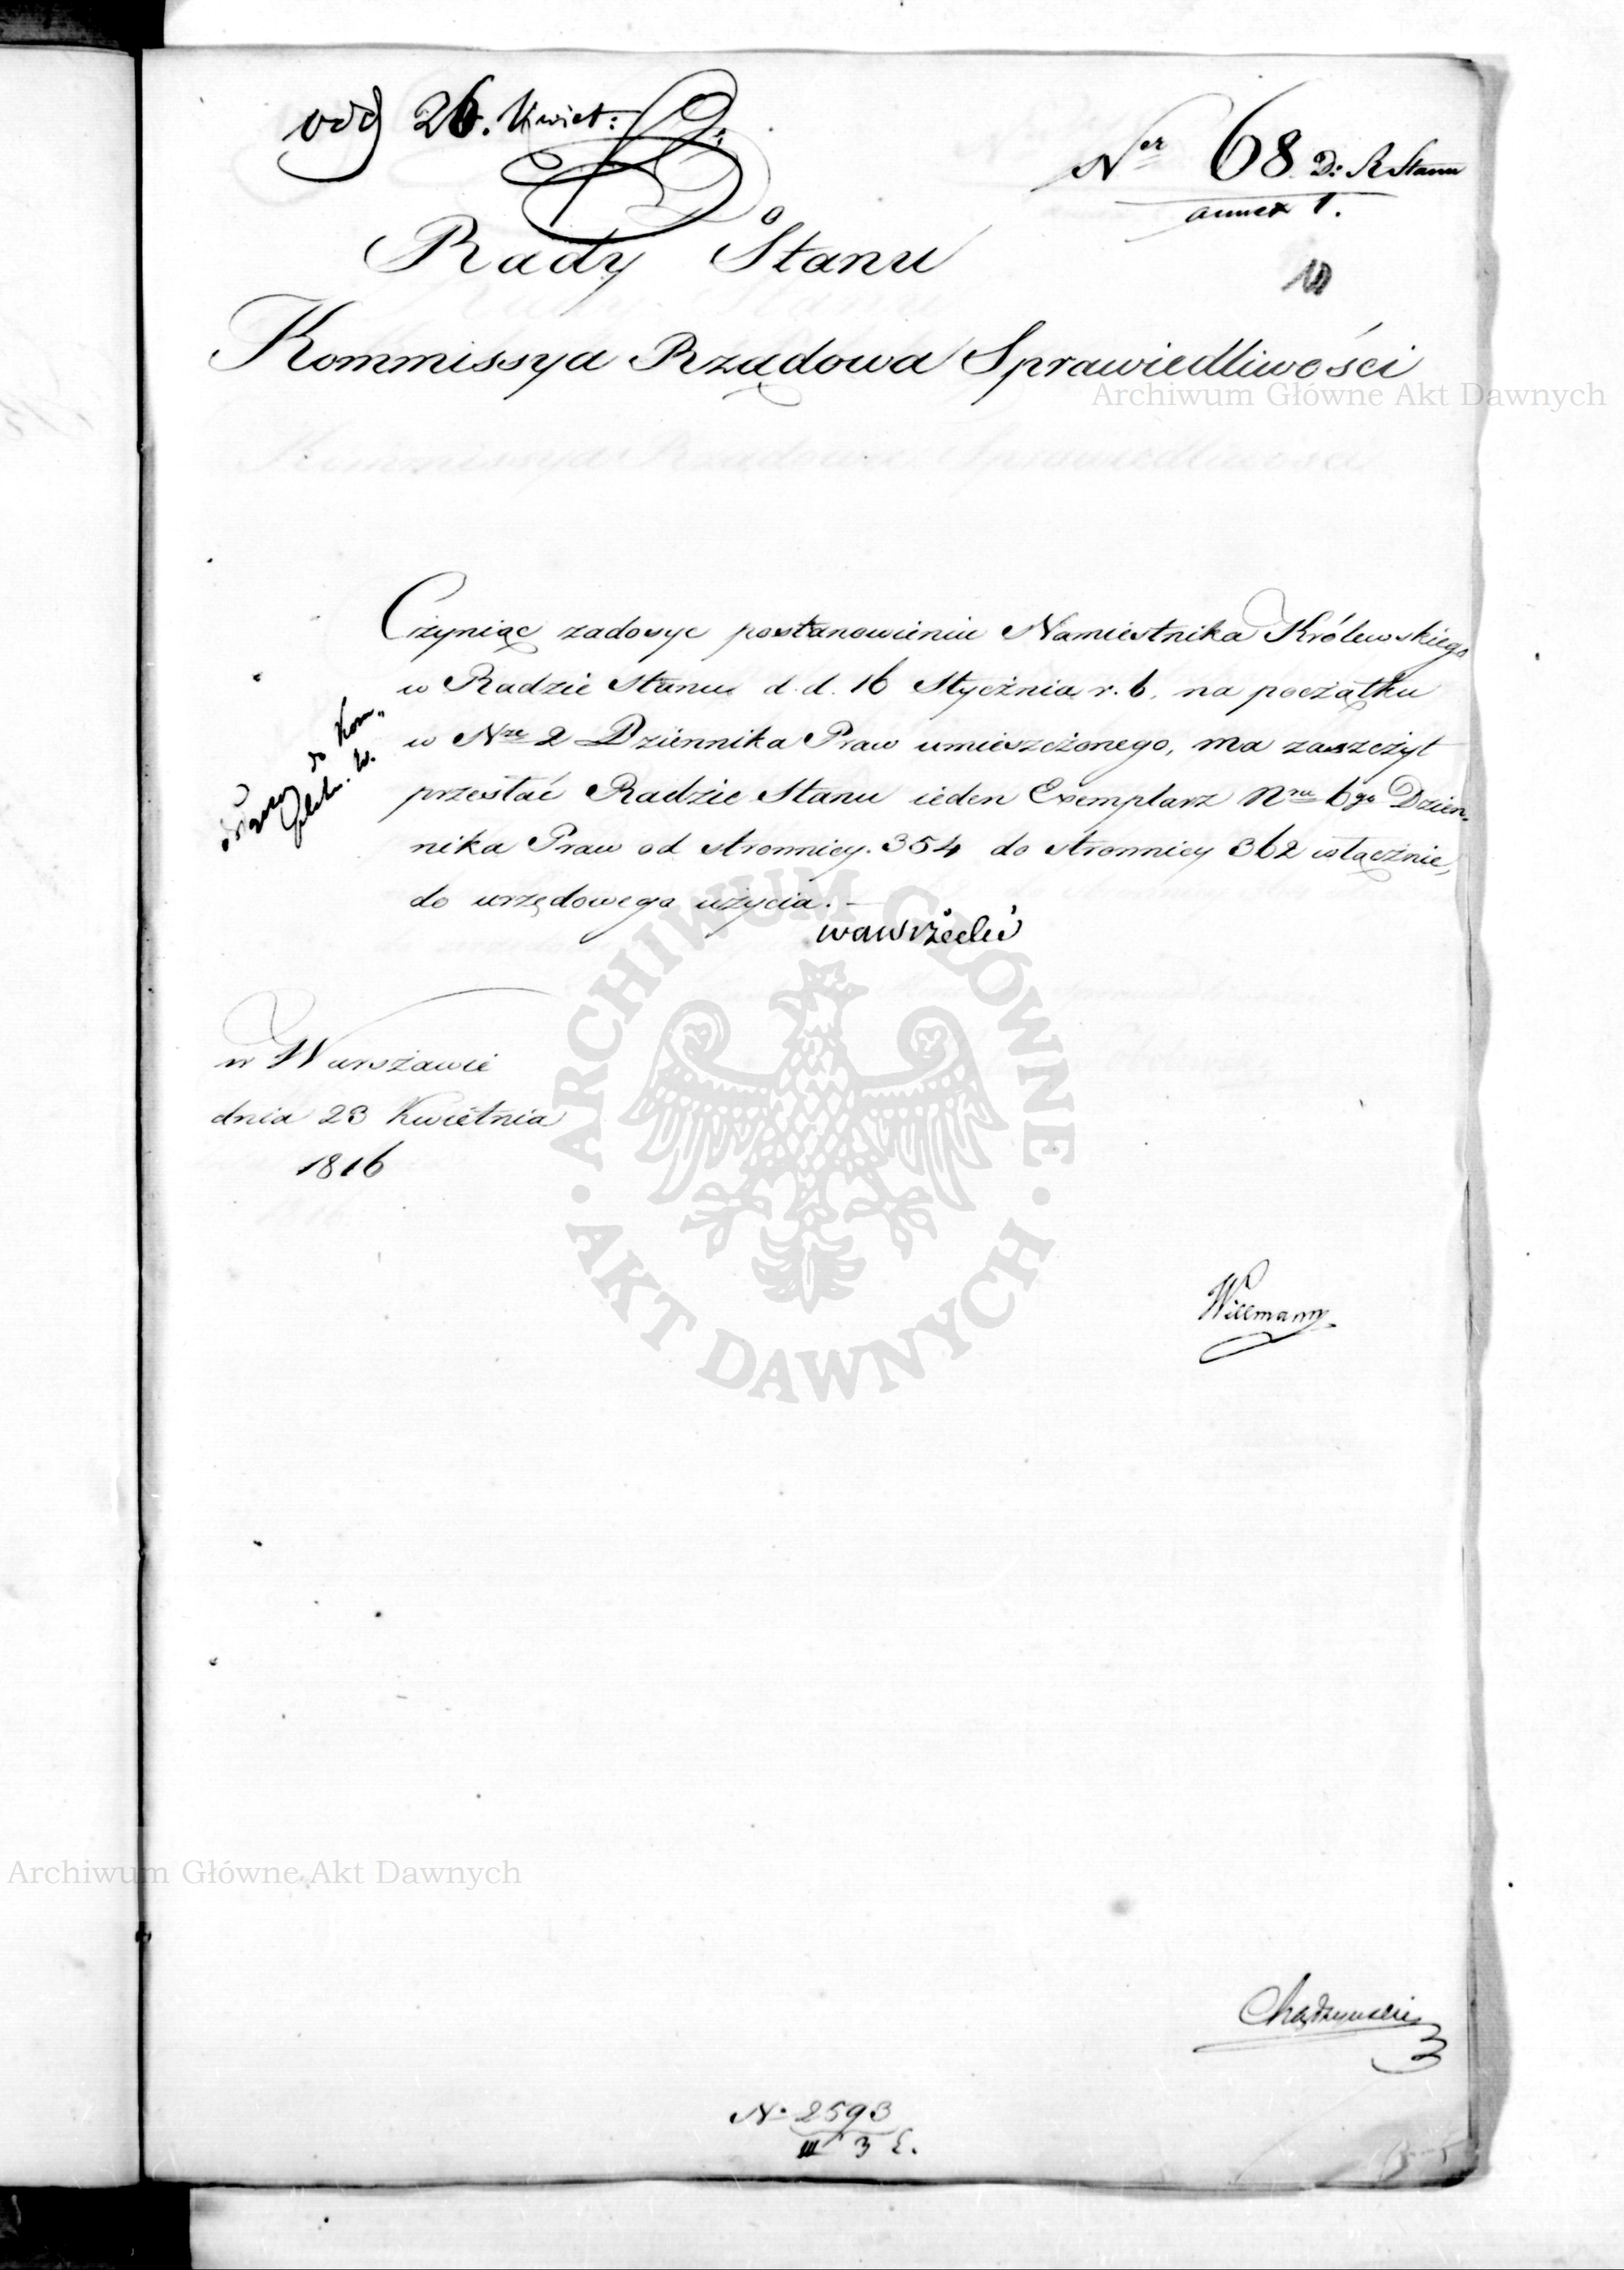 odd 26. Kwiet:
Ner 68 D: R Stanu
annex 1.
10
Do
Rady Stanu
Kommissya Rządowa Sprawiedliwości
Archiwum Główne Akt Dawnych
Czyniąc zadosyc postanowieniu Namiestnika Królewskiego
w Radzie Stanu d. d. 16 Stycznia r. b. na początku
w Nrze 2 Dziennika Praw umieszczonego, ma zaszczyt
przesłać Radzie Stanu ieden Exemplarz Nru 6go Dzien-
nika Praw od stronnicy. 354 do stronnicy 362 włącznie,
do urzędowego użycia. —
do Kom„
wawrzecki
w Warszawie
dnia 23 Kwietnia
1816
ARCHIWUM GŁÓWNE · AKT DAWNYCH ·
Willmann
Archiwum Główne Akt Dawnych
Chądzynski
N. 2593
III 3 E.